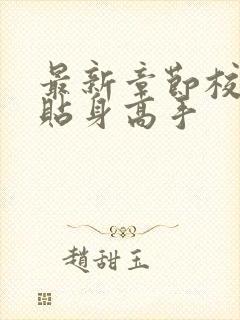 最新章節校
貼身高手
趙甜玉